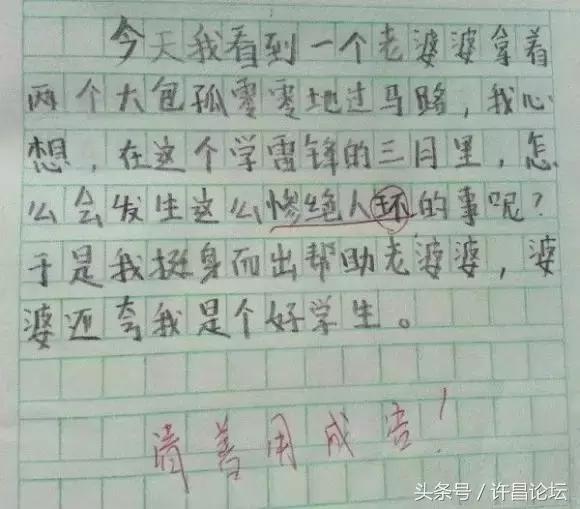 今天我看到一个老婆婆拿着
两个大包孤零零地过马路，我心
想，在这个学雷锋的三月里，怎
么会发生这么惨绝人环的事呢？
于是我挺身而出帮助老婆婆，婆
婆还夸我是个好学生。
请善用成语！
头条号／许昌论坛